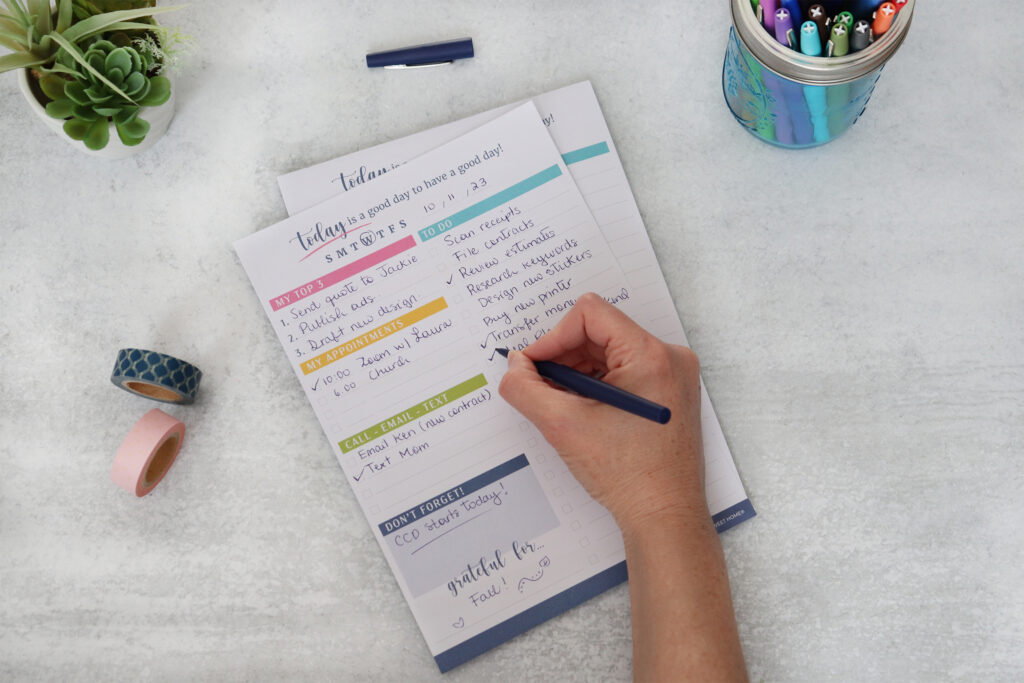 today is a good day to have a good day!
S M T W T F S
10, 11, 23
MY TOP 3
1. Send quote to Jackie
2. Publish ads.
3. Draft new design
MY APPOINTMENTS
✓ 10:00 Zoom w/ Laura
6:00 Church
CALL - EMAIL - TEXT
Email Ken (new contract)
✓ Text Mom
DON'T FORGET!
CCD starts today!
grateful for...
Fall!
TO DO
Scan receipts
File contracts
✓ Review estimates
Research keywords
Design new stickers
Buy new printer
✓ Transfer money
✓
today is